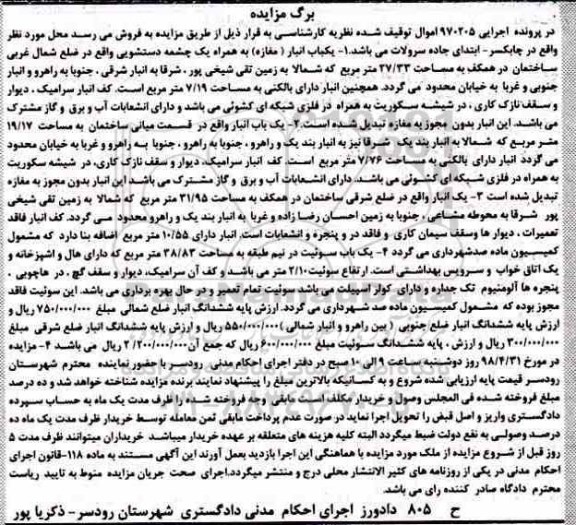 برگ مزایده
در پرونده اجرایی ۹۷۰۲۰۵ اموال توقیف شده نظریه کارشناسی به قرار ذیل از طریق مزایده به فروش می رسد محل مورد نظر
واقع در چابکسر- ابتدای جاده سرولات می باشد.۱- یکباب انبار (مغازه) به همراه یک چشمه دستشویی واقع در ضلع شمال غربی
ساختمان در همکف به مساحت ۲۷/۳۳ متر مربع که شمالا به زمین تقی شیخی پور ، شرقا به انبار شرقی ، جنوبا به راهرو و انبار
جنوبی و غربا به خیابان محدود می گردد. همچنین انبار دارای بالکنی به مساحت ۷/۱۹ متر مربع است. کف انبار سرامیک ، دیوار
و سقف نازک کاری ، در شیشه سکوریت به همراه در فلزی شبکه ای کشوئی می باشد و دارای انشعابات آب و برق و گاز مشترک
می باشد. این انبار بدون مجوز به مغازه تبدیل شده است.۲- یک باب انبار واقع در قسمت میانی ساختمان به مساحت ۱۹/۱۷
متر مربع که شمالا به انبار بند یک ، شرقا نیز به انبار بند یک و راهرو ، جنوبا به راهرو ، جنوبا به راهرو و غربا به خیابان محدود
می گردد انبار دارای بالکنی به مساحت ۷/۷۶ متر مربع است. کف انبار سرامیک، دیوار و سقف نازک کاری، در شیشه سکوریت
به همراه در فلزی شبکه ای کشوئی می باشد. دارای انشعابات آب و برق و گاز مشترک می باشد این انبار بدون مجوز به مغازه
تبدیل شده است ۳- یک انبار واقع در ضلع شرقی ساختمان در همکف به مساحت ۳۱/۹۵ متر مربع که شمالا به زمین تقی شیخی
پور شرقا به محوطه مشاعی ، جنوبا به زمین احسان رضا زاده و غربا به انبار بند یک و راهرو محدود می گردد. کف انبار فاقد
تعمیرات ، دیوار ها وسقف سیمان کاری و فاقد در و پنجره و انشعابات است. انبار دارای ۱۰/۵۵ متر مربع اضافه بنا دارد که مشمول
کمیسیون ماده صدشهرداری می گردد ۴- یک باب سوئیت در نیم طبقه به مساحت ۳۸/۸۳ متر مربع که دارای هال و اشپزخانه و
یک اتاق خواب و سرویس بهداشتی است. ارتفاع سوئیت۲/۱۰ متر می باشد و کف آن سرامیک، دیوار و سقف گچ ، در هاچوبی ،
پنجره ها آلومنیوم تک جداره و دارای کولر اسپیلت می باشد سوئیت تمام تعمیر و در حال بهره برداری می باشد. این سوئیت فاقد
مجوز بوده که مشمول کمیسیون ماده صد شهرداری می گردد. ارزش پایه ششدانگ انبار ضلع شمالی مبلغ ۷۵۰/۰۰۰/۰۰۰ ریال و
ارزش پایه ششدانگ انبار ضلع جنوبی (بین راهرو و انبار شمالی )۵۵۰/۰۰۰/۰۰۰ ریال و ارزش پایه ششدانگ انبار ضلع شرقی مبلغ
۳۰۰/۰۰۰/۰۰۰ ریال و ارزش پایه ششدانگ سوئیت مبلغ ۶۰۰/۰۰۰/۰۰۰ ریال که جمع آن۲/۲۰۰/۰۰۰/۰۰۰ ریال می باشد ۴- مزایده
در مورخ ۹۸/۴/۳۱ روز دوشنبه ساعت ۹ الی ۱۰ صبح در دفتر اجرای احکام مدنی رودسر با حضور نماینده محترم شهرستان
رودسر قیمت پایه ارزیابی شده شروع و به کسانیکه بالاترین مبلغ را پیشنهاد نمایند برنده مزایده شناخته خواهد شد و ده درصد
مبلغ فروخته شده فی المجلس وصول و خریدار مکلف است مابقی وجه فروخته شده را ظرف مدت یک ماه به حساب سپرده
دادگستری واریز و اصل قبض را تحویل اجرا نماید در صورت عدم پرداخت مابقی ثمن معامله توسط خریدار ظرف مدت یک ماه ده
درصد وصولی به نفع دولت ضبط میگردد البته کلیه هزینه های متعلقه بر عهده خریدار میباشد خریداران میتوانند ظرف مدت ۵
روز قبل از شروع مزایده از ملک مورد مزایده با هماهنگی این اجرا بازدید بعمل آورند این آگهی مستند به ماده ۱۱۸-قانون اجرای
احکام مدنی در یکی از روزنامه های کثیر الانتشار محلی درج و منتشر میگردد.اجرای صحت جریان مزایده منوط به تایید ریاست
محترم دادگاه صادر کننده رای می باشد.
ح ۸۰۵ دادورز اجرای احکام مدنی دادگستری شهرستان رودسر-ذکریا پور